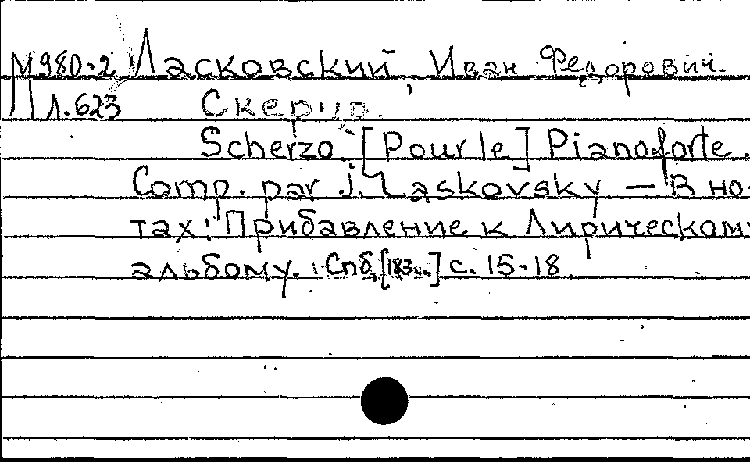 М980-2 Ласковский, Иван Федорович.
Л.623 Скерцо.
Scherzo. [Pour le] Pianoforte.
Comp. par J. Laskovsky — В но-
тах: Прибавление к Лирическому
альбому. Спб, с. 15-18